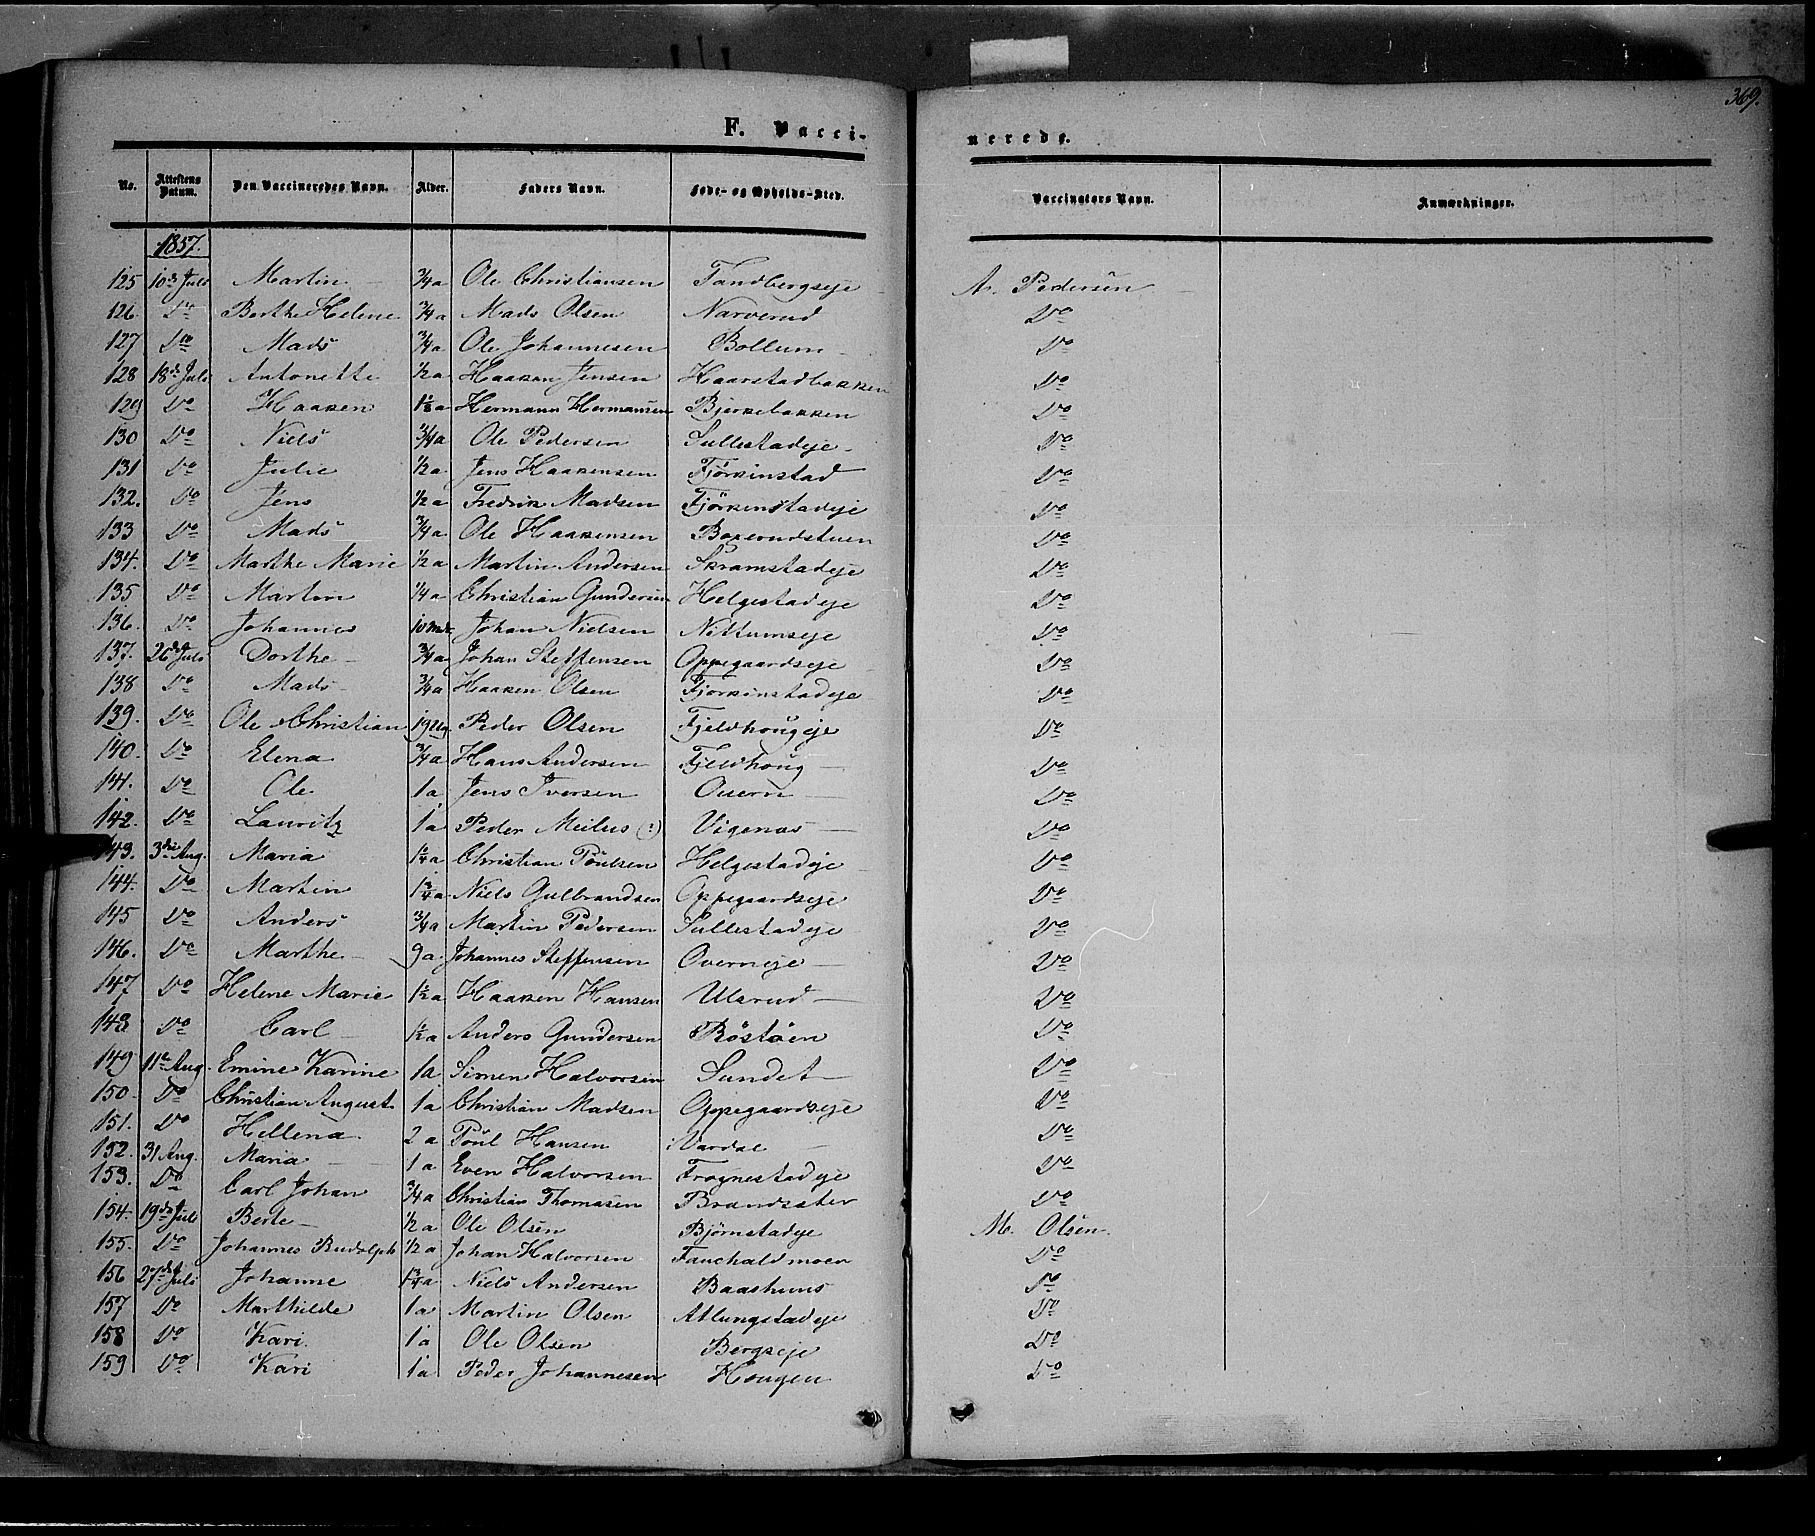 369.
F. Vacci-
nerede.
No. Attestens Datum. Den Vaccineredes Navn. Alder. Faders Navn. Føde- og Opholds-Sted. Vaccinators Navn. Anmærkninger.
1857.
125 10de Juli Martin 3/4 a Ole Christiansen Tandbergseje A. Pedersen
126. Do Berthe Helene 3/4 a Mads Olsen Narverud Do
127 Do Mads 3/4 a Ole Johannesen Bollum Do
128 18de Juli Antonette 1/2 a Haaken Jensen Kaarstadbakken Do
129 Do Haaken 1 1/8 a Hermann Hermansen Bjerkebakken Do
130 Do Niels 3/4 a Ole Pedersen Sullestadeje Do
131 Do Julie 1/2 a Jens Haakensen Fjørkinstad Do
132. Do Jens 1/2 a Fredrik Madsen Fjörkenstadeje Do
133 Do Mads 3/4 a Ole Haakensen Bererudstuen Do
134. Do Marthe Marie 1/2 a Martin Andersen Skramstadeje Do
135 Do Martin 1/4 a Christian Gundersen Helgestadeje Do
136. Do Johannes 10 Mdr Johan Nielsen Nittumseje Do
137. 26de Juli Dorthe 3/4 a Johan Steffensen Oppegaardseje Do
138 Do Mads 3/4 a Haaken Olsen Fjørkinstadeje Do
139. Do Ole Christian 19 Ug Peder Olsen Fjeldhougeje Do
140. Do Elena 3/4 a Hans Andersen Fjeldhoug Do
141. Do Ole 1 a Jens Iversen Ouern Do
142. Do Lauritz 1 a Peder Meilus (?) Vigenæs Do
143. 3die Aug. Maria 1 1/4 a Christian Poulsen Helgestadeje Do
144. Do Martin 1 3/4 a Niels Gulbrandsen Oppegaardseje Do
145 Do Anders 3/4 a Martin Pedersen Sullestadeje Do
146. Do Marthe 9 a Johannes Steffensen Overneje Do
147 Do Helene Marie 1 1/2 a Haaken Hansen Ulsrud Do
148 Do Carl 1 1/2 a Anders Gundersen Röstöen Do
149 11te Aug. Emine Karine 1 a Simen Halvorsen Sundet Do
150. Do Christian August 1 a Christian Madsen Oppegaardseje Do
151. Do Hellena 2 a Poul Hansen Nordae Do
152. 31 Aug. Maria 1 a Even Halvorsen Frognestadeje Do
153. Do Carl Johan 3/4 a Christian Thomasen Brandsæter Do
154. 19de Juli Berte 1/2 a Ole Olsen Bjørnstadeje M. Olsen
155. Do Johannes Rudolph 1/2 a Johan Halvorsen Fauchaldmoen Do
156 27de Juli Johanne 1 3/4 a Niels Andersen Baashuus Do
157 Do Marthilde 1 a Martin Olsen Atlungstadeje Do
158 Do Kari 1 a Ole Olsen Bergseje Do
159 Do Kari 1 a Peder Johannesen Hougen Do